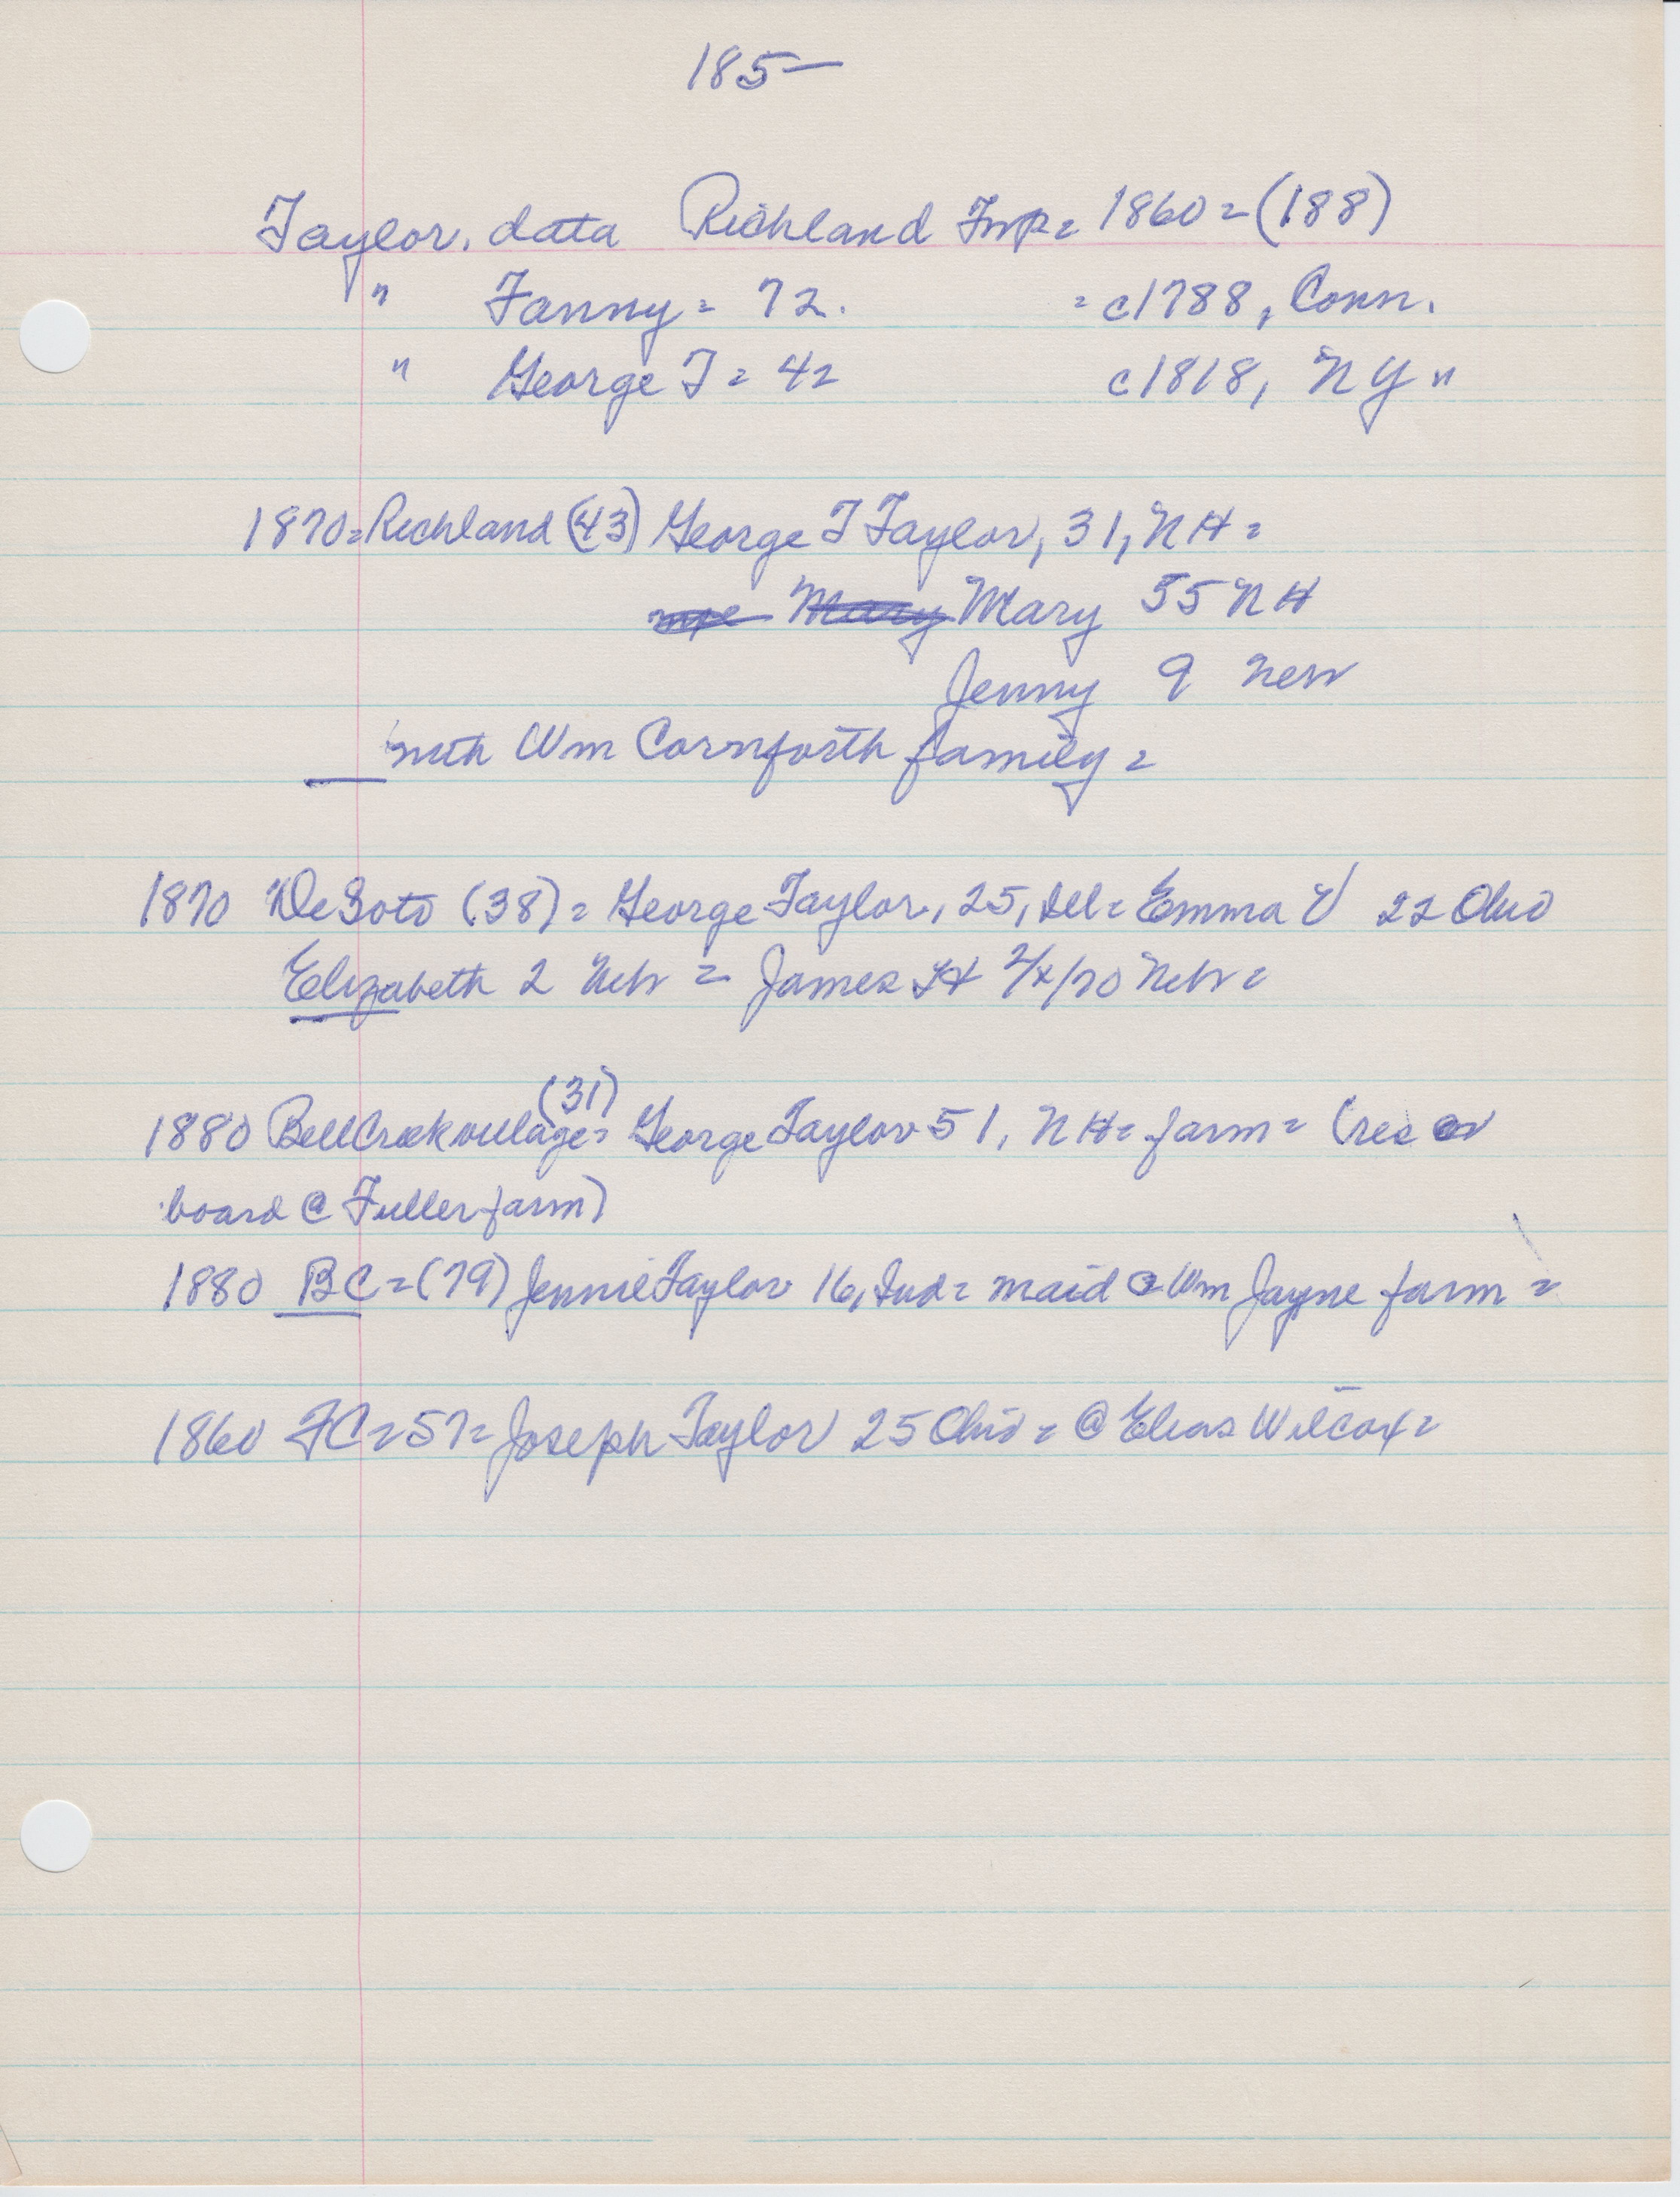 185—
Taylor, data Richland Twp = 1860 = (188)
" Fanny = 72. = c1788, Conn.
" George T = 42 c1818, NY "
1870 = Richland (43) George T Taylor, 31, NH =
Mary Mary 55 NH
Jenny 9 Nebr
with Wm Cornforth family =
1870 DeSoto (38) = George Taylor, 25, Del = Emma V 22 Ohio
Elizabeth 2 Nebr = James H 2/x/70 Nebr =
(31)
1880 Bell Creek village = George Taylor 51, NH = farm = (res or
board @ Fuller farm)
1880 BC = (79) Jennie Taylor 16, Ind = maid @ Wm Jayne farm =
1860 FC = 57 = Joseph Taylor 25 Ohio = @ Elias Wilcox =